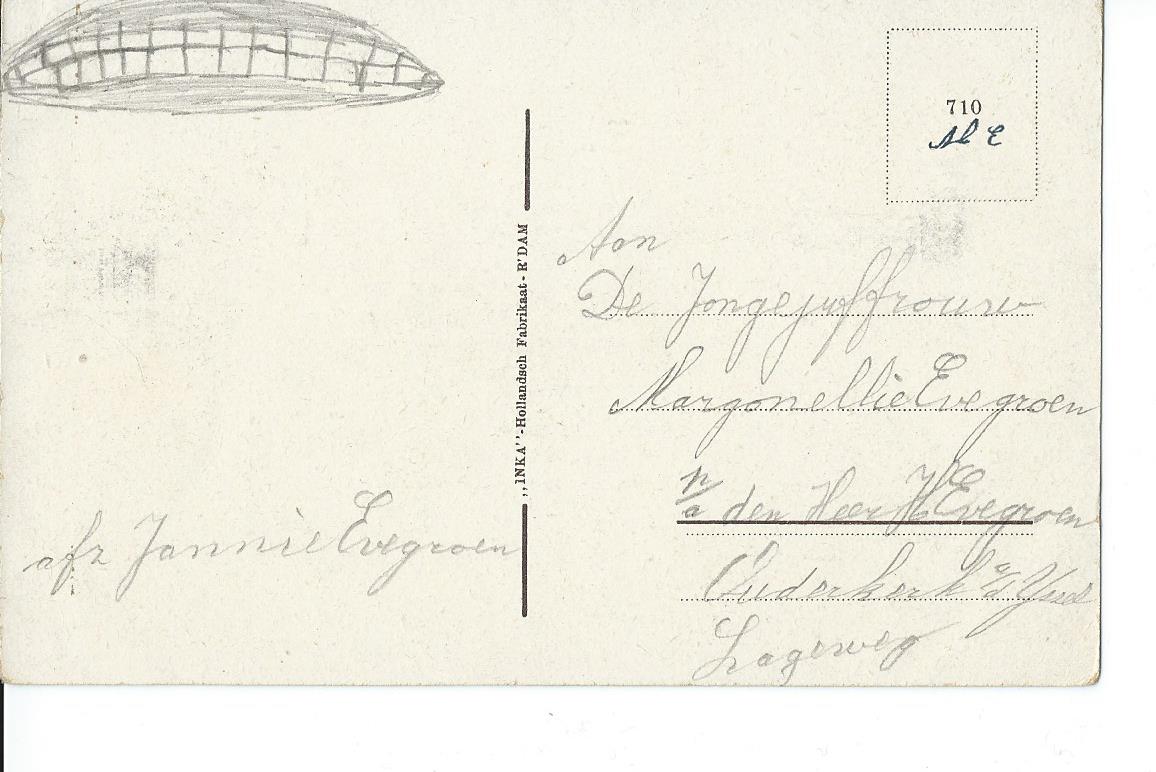 710
Al E
„INKA''-Hollandsch Fabrikaat - R'DAM
Aan
De Jongejuffrouw
Margonellie Evegroen
p/a den Heer H Evegroen
Ouderkerk a/d Yssel
Lageweg
afz Jannie Evegroen